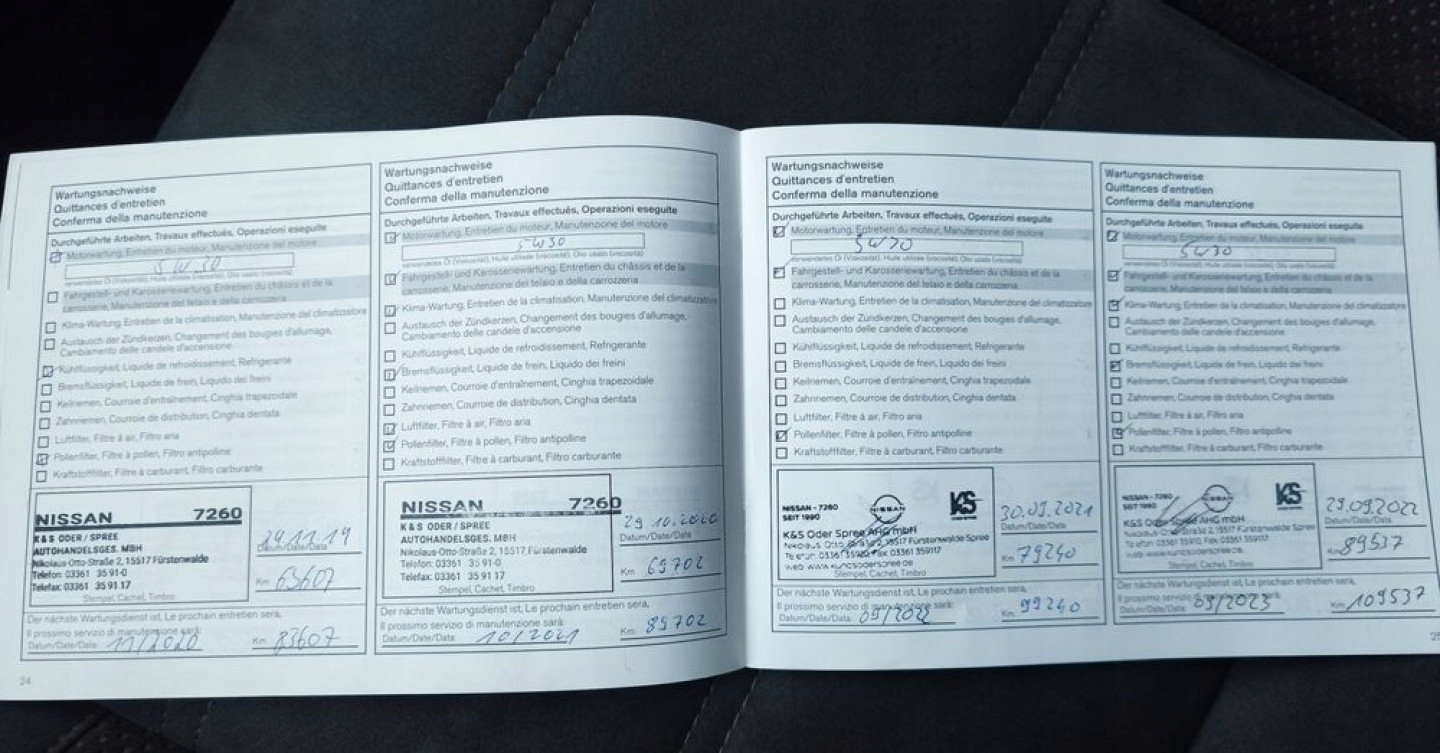 Wartungsnachweise
Quittances d'entretien
Conferma della manutenzione
Durchgeführte Arbeiten, Travaux effectués, Operazioni eseguite
Motorwartung, Entretien du moteur, Manutenzione del motore
5W30
verwendetes Öl (Viskosität), Huile utilisée (viscosité), Olio usato (viscosità)
Fahrgestell- und Karosseriewartung, Entretien du châssis et de la
carrosserie, Manutenzione del telaio e della carrozzeria
Klima-Wartung, Entretien de la climatisation, Manutenzione del climatizzatore
Austausch der Zündkerzen, Changement des bougies d'allumage,
Cambiamento delle candele d'accensione
Kühlflüssigkeit, Liquide de refroidissement, Refrigerante
Bremsflüssigkeit, Liquide de frein, Liquido dei freini
Keilriemen, Courroie d'entraînement, Cinghia trapezoidale
Zahnriemen, Courroie de distribution, Cinghia dentata
Luftfilter, Filtre à air, Filtro aria
Pollenfilter, Filtre à pollen, Filtro antipolline
Kraftstofffilter, Filtre à carburant, Filtro carburante
NISSAN 7260
K&S ODER / SPREE
AUTOHANDELSGES. MBH
Nikolaus-Otto-Straße 2, 15517 Fürstenwalde
Telefon: 03361 35 91-0
Telefax: 03361 35 91 17
Stempel, Cachet, Timbro
Datum/Date/Data
Km 63607
Der nächste Wartungsdienst ist, Le prochain entretien sera,
Il prossimo servizio di manutenzione sarà:
Datum/Date/Data: 11/2020 Km: 83607
24
Wartungsnachweise
Quittances d'entretien
Conferma della manutenzione
Durchgeführte Arbeiten, Travaux effectués, Operazioni eseguite
Motorwartung, Entretien du moteur, Manutenzione del motore
5W30
verwendetes Öl (Viskosität), Huile utilisée (viscosité), Olio usato (viscosità)
Fahrgestell- und Karosseriewartung, Entretien du châssis et de la
carrosserie, Manutenzione del telaio e della carrozzeria
Klima-Wartung, Entretien de la climatisation, Manutenzione del climatizzatore
Austausch der Zündkerzen, Changement des bougies d'allumage,
Cambiamento delle candele d'accensione
Kühlflüssigkeit, Liquide de refroidissement, Refrigerante
Bremsflüssigkeit, Liquide de frein, Liquido dei freini
Keilriemen, Courroie d'entraînement, Cinghia trapezoidale
Zahnriemen, Courroie de distribution, Cinghia dentata
Luftfilter, Filtre à air, Filtro aria
Pollenfilter, Filtre à pollen, Filtro antipolline
Kraftstofffilter, Filtre à carburant, Filtro carburante
NISSAN 7260
K&S ODER / SPREE
AUTOHANDELSGES. MBH
Nikolaus-Otto-Straße 2, 15517 Fürstenwalde
Telefon: 03361 35 91-0
Telefax: 03361 35 91 17
Stempel, Cachet, Timbro
29.10.2020
Datum/Date/Data
Km 69702
Der nächste Wartungsdienst ist, Le prochain entretien sera,
Il prossimo servizio di manutenzione sarà:
Datum/Date/Data: 10/2021 Km: 89702
Wartungsnachweise
Quittances d'entretien
Conferma della manutenzione
Durchgeführte Arbeiten, Travaux effectués, Operazioni eseguite
Motorwartung, Entretien du moteur, Manutenzione del motore
5W30
verwendetes Öl (Viskosität), Huile utilisée (viscosité), Olio usato (viscosità)
Fahrgestell- und Karosseriewartung, Entretien du châssis et de la
carrosserie, Manutenzione del telaio e della carrozzeria
Klima-Wartung, Entretien de la climatisation, Manutenzione del climatizzatore
Austausch der Zündkerzen, Changement des bougies d'allumage,
Cambiamento delle candele d'accensione
Kühlflüssigkeit, Liquide de refroidissement, Refrigerante
Bremsflüssigkeit, Liquide de frein, Liquido dei freini
Keilriemen, Courroie d'entraînement, Cinghia trapezoidale
Zahnriemen, Courroie de distribution, Cinghia dentata
Luftfilter, Filtre à air, Filtro aria
Pollenfilter, Filtre à pollen, Filtro antipolline
Kraftstofffilter, Filtre à carburant, Filtro carburante
NISSAN - 7260
SEIT 1990
NISSAN
KS
K&S Oder Spree AHG mbH
15517 Fürstenwalde Spree
Fax 03361 359117
Stempel, Cachet, Timbro
30.09.2021
Datum/Date/Data
Km 79240
Der nächste Wartungsdienst ist, Le prochain entretien sera,
Il prossimo servizio di manutenzione sarà:
Datum/Date/Data: 09/2022 Km: 99240
Wartungsnachweise
Quittances d'entretien
Conferma della manutenzione
Durchgeführte Arbeiten, Travaux effectués, Operazioni eseguite
Motorwartung, Entretien du moteur, Manutenzione del motore
5W30
verwendetes Öl (Viskosität), Huile utilisée (viscosité), Olio usato (viscosità)
Fahrgestell- und Karosseriewartung, Entretien du châssis et de la
carrosserie, Manutenzione del telaio e della carrozzeria
Klima-Wartung, Entretien de la climatisation, Manutenzione del climatizzatore
Austausch der Zündkerzen, Changement des bougies d'allumage,
Cambiamento delle candele d'accensione
Kühlflüssigkeit, Liquide de refroidissement, Refrigerante
Bremsflüssigkeit, Liquide de frein, Liquido dei freini
Keilriemen, Courroie d'entraînement, Cinghia trapezoidale
Zahnriemen, Courroie de distribution, Cinghia dentata
Luftfilter, Filtre à air, Filtro aria
Pollenfilter, Filtre à pollen, Filtro antipolline
Kraftstofffilter, Filtre à carburant, Filtro carburante
NISSAN - 7260
SEIT 1990
NISSAN
KS
K&S Oder Spree AHG mbH
15517 Fürstenwalde Spree
Fax 03361 359117
Stempel, Cachet, Timbro
29.09.2022
Datum/Date/Data
Km 89537
Der nächste Wartungsdienst ist, Le prochain entretien sera,
Il prossimo servizio di manutenzione sarà:
Datum/Date/Data: 09/2023 Km: 109537